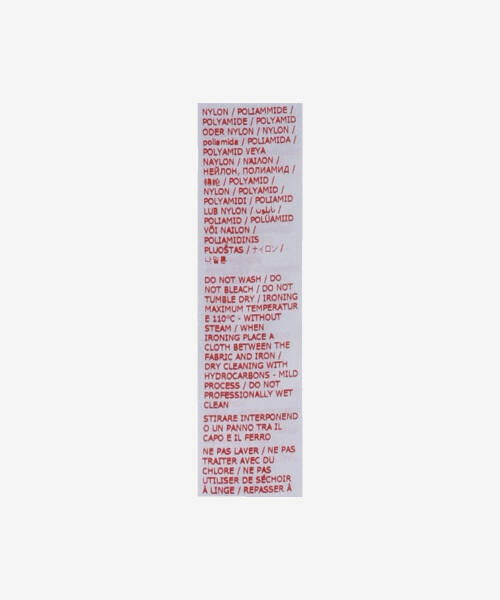 NYLON / POLIAMMIDE /
POLYAMIDE / POLYAMID
ODER NYLON / NYLON /
poliamida / POLIAMIDA /
POLYAMID VEYA
NAYLON / ΝΑΙΛΟΝ /
НЕЙЛОН, ПОЛИАМИД /
/ POLYAMID /
NYLON / POLYAMID /
POLYAMIDI / POLIAMID
LUB NYLON / نايلون /
POLIAMID / POLÜAMIID
VÕI NAILON /
POLIAMIDINIS
PLUOŠTAS / ナイロン /
나일론
DO NOT WASH / DO
NOT BLEACH / DO NOT
TUMBLE DRY / IRONING
MAXIMUM TEMPERATUR
E 110°C - WITHOUT
STEAM / WHEN
IRONING PLACE A
CLOTH BETWEEN THE
FABRIC AND IRON /
DRY CLEANING WITH
HYDROCARBONS - MILD
PROCESS / DO NOT
PROFESSIONALLY WET
CLEAN
STIRARE INTERPONEND
O UN PANNO TRA IL
CAPO E IL FERRO
NE PAS LAVER / NE PAS
TRAITER AVEC DU
CHLORE / NE PAS
UTILISER DE SÉCHOIR
À LINGE / REPASSER À